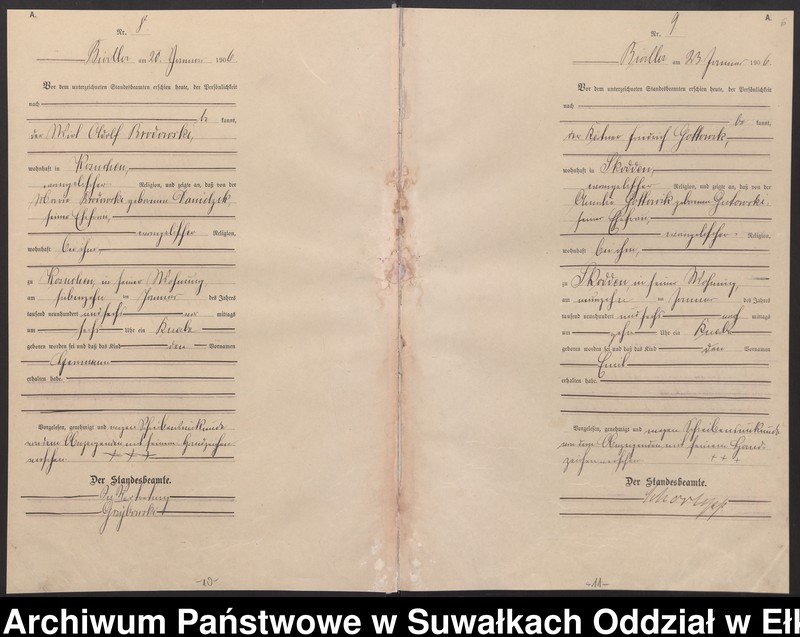 A.
Nr. 8
am 20. Januar 1906
Vor dem unterzeichneten Standesbeamten erschien heute, der Persönlichkeit
nach
be kannt,
der Wirt Adolf
wohnhaft in
evangelischer Religion, und zeigte an, daß von der
Marie geborenen
seiner Ehefrau,
evangelischer Religion,
wohnhaft bei ihm,
zu in seiner Wohnung,
am siebenzehn ten Januar des Jahres
tausend neunhundert und sechs vor mittags
um sechs Uhr ein Knabe
geboren worden sei und daß das Kind den Vornamen
Hermann
erhalten habe.
Vorgelesen, genehmigt und wegen Schreibensunkunde
von dem Anzeigenden mit seinem Handzeichen
versehen + + +
Der Standesbeamte.
In Vertretung
Grzybowski
-10-
A.
6
Nr. 9
am 23 Januar 1906.
Vor dem unterzeichneten Standesbeamten erschien heute, der Persönlichkeit
nach
be kannt,
der Kätner Friedrich
wohnhaft in Skodden,
evangelischer Religion, und zeigte an, daß von der
geborenen
seiner Ehefrau,
evangelischer Religion,
wohnhaft bei ihm,
zu Skodden, in seiner Wohnung,
am neunzehn ten Januar des Jahres
tausend neunhundert und sechs nach mittags
um zehn Uhr ein Knabe
geboren worden sei und daß das Kind den Vornamen
Emil
erhalten habe.
Vorgelesen, genehmigt und wegen Schreibensunkunde
von dem Anzeigenden mit seinem Hand-
zeichen versehen + + +
Der Standesbeamte.
-11-
Archiwum Państwowe w Suwałkach Oddział w Eł